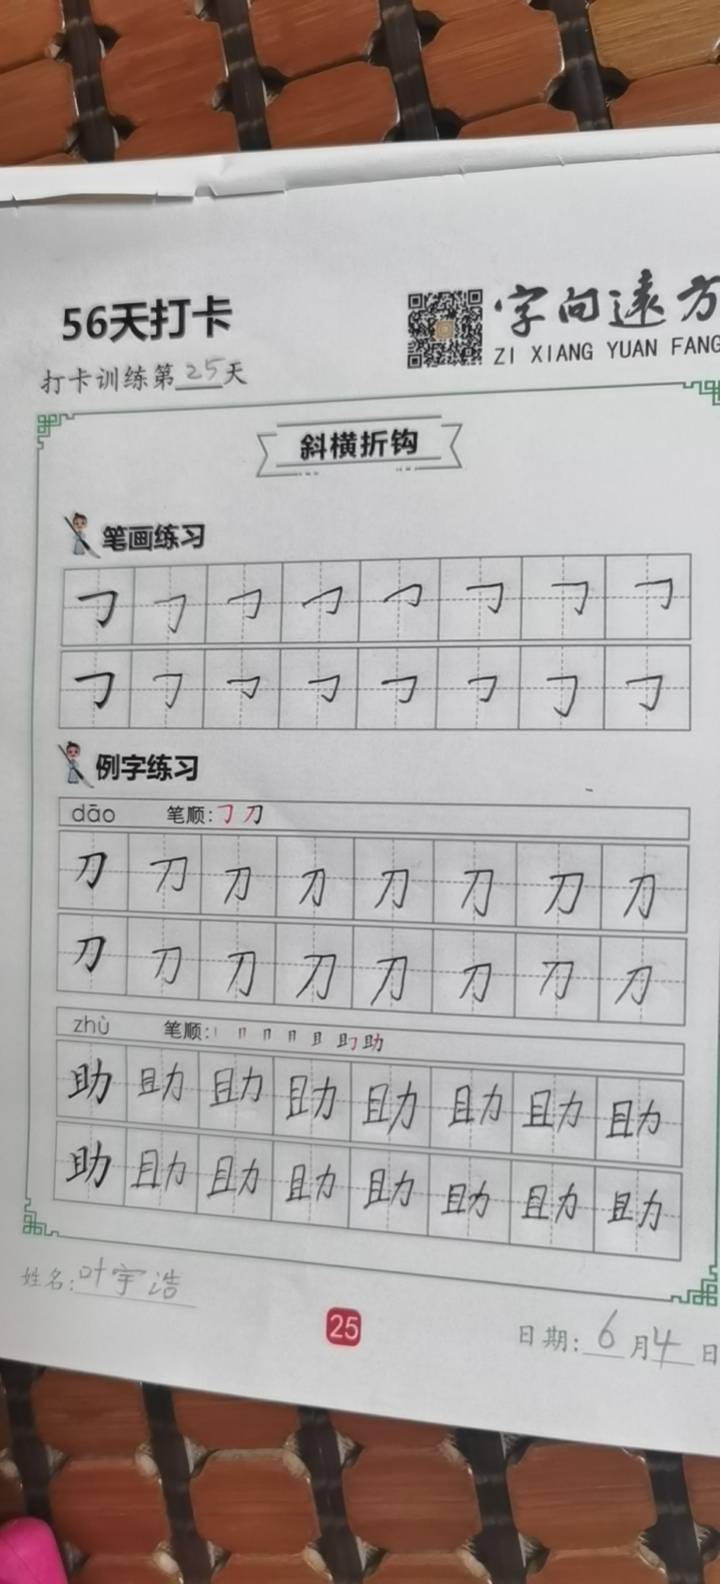 56天打卡
字向远方
ZI XIANG YUAN FANG
打卡训练第25天
斜横折钩
笔画练习
㇆ ㇆ ㇆ ㇆ ㇆ ㇆ ㇆ ㇆
㇆ ㇆ ㇆ ㇆ ㇆ ㇆ ㇆ ㇆
例字练习
dāo 笔顺:㇆ 刀
刀 刀 刀 刀 刀 刀 刀 刀
刀 刀 刀 刀 刀 刀 刀 刀
zhù 笔顺: 助
助 助 助 助 助 助 助 助
助 助 助 助 助 助 助 助
姓名:叶宇浩
25
日期:6月4日